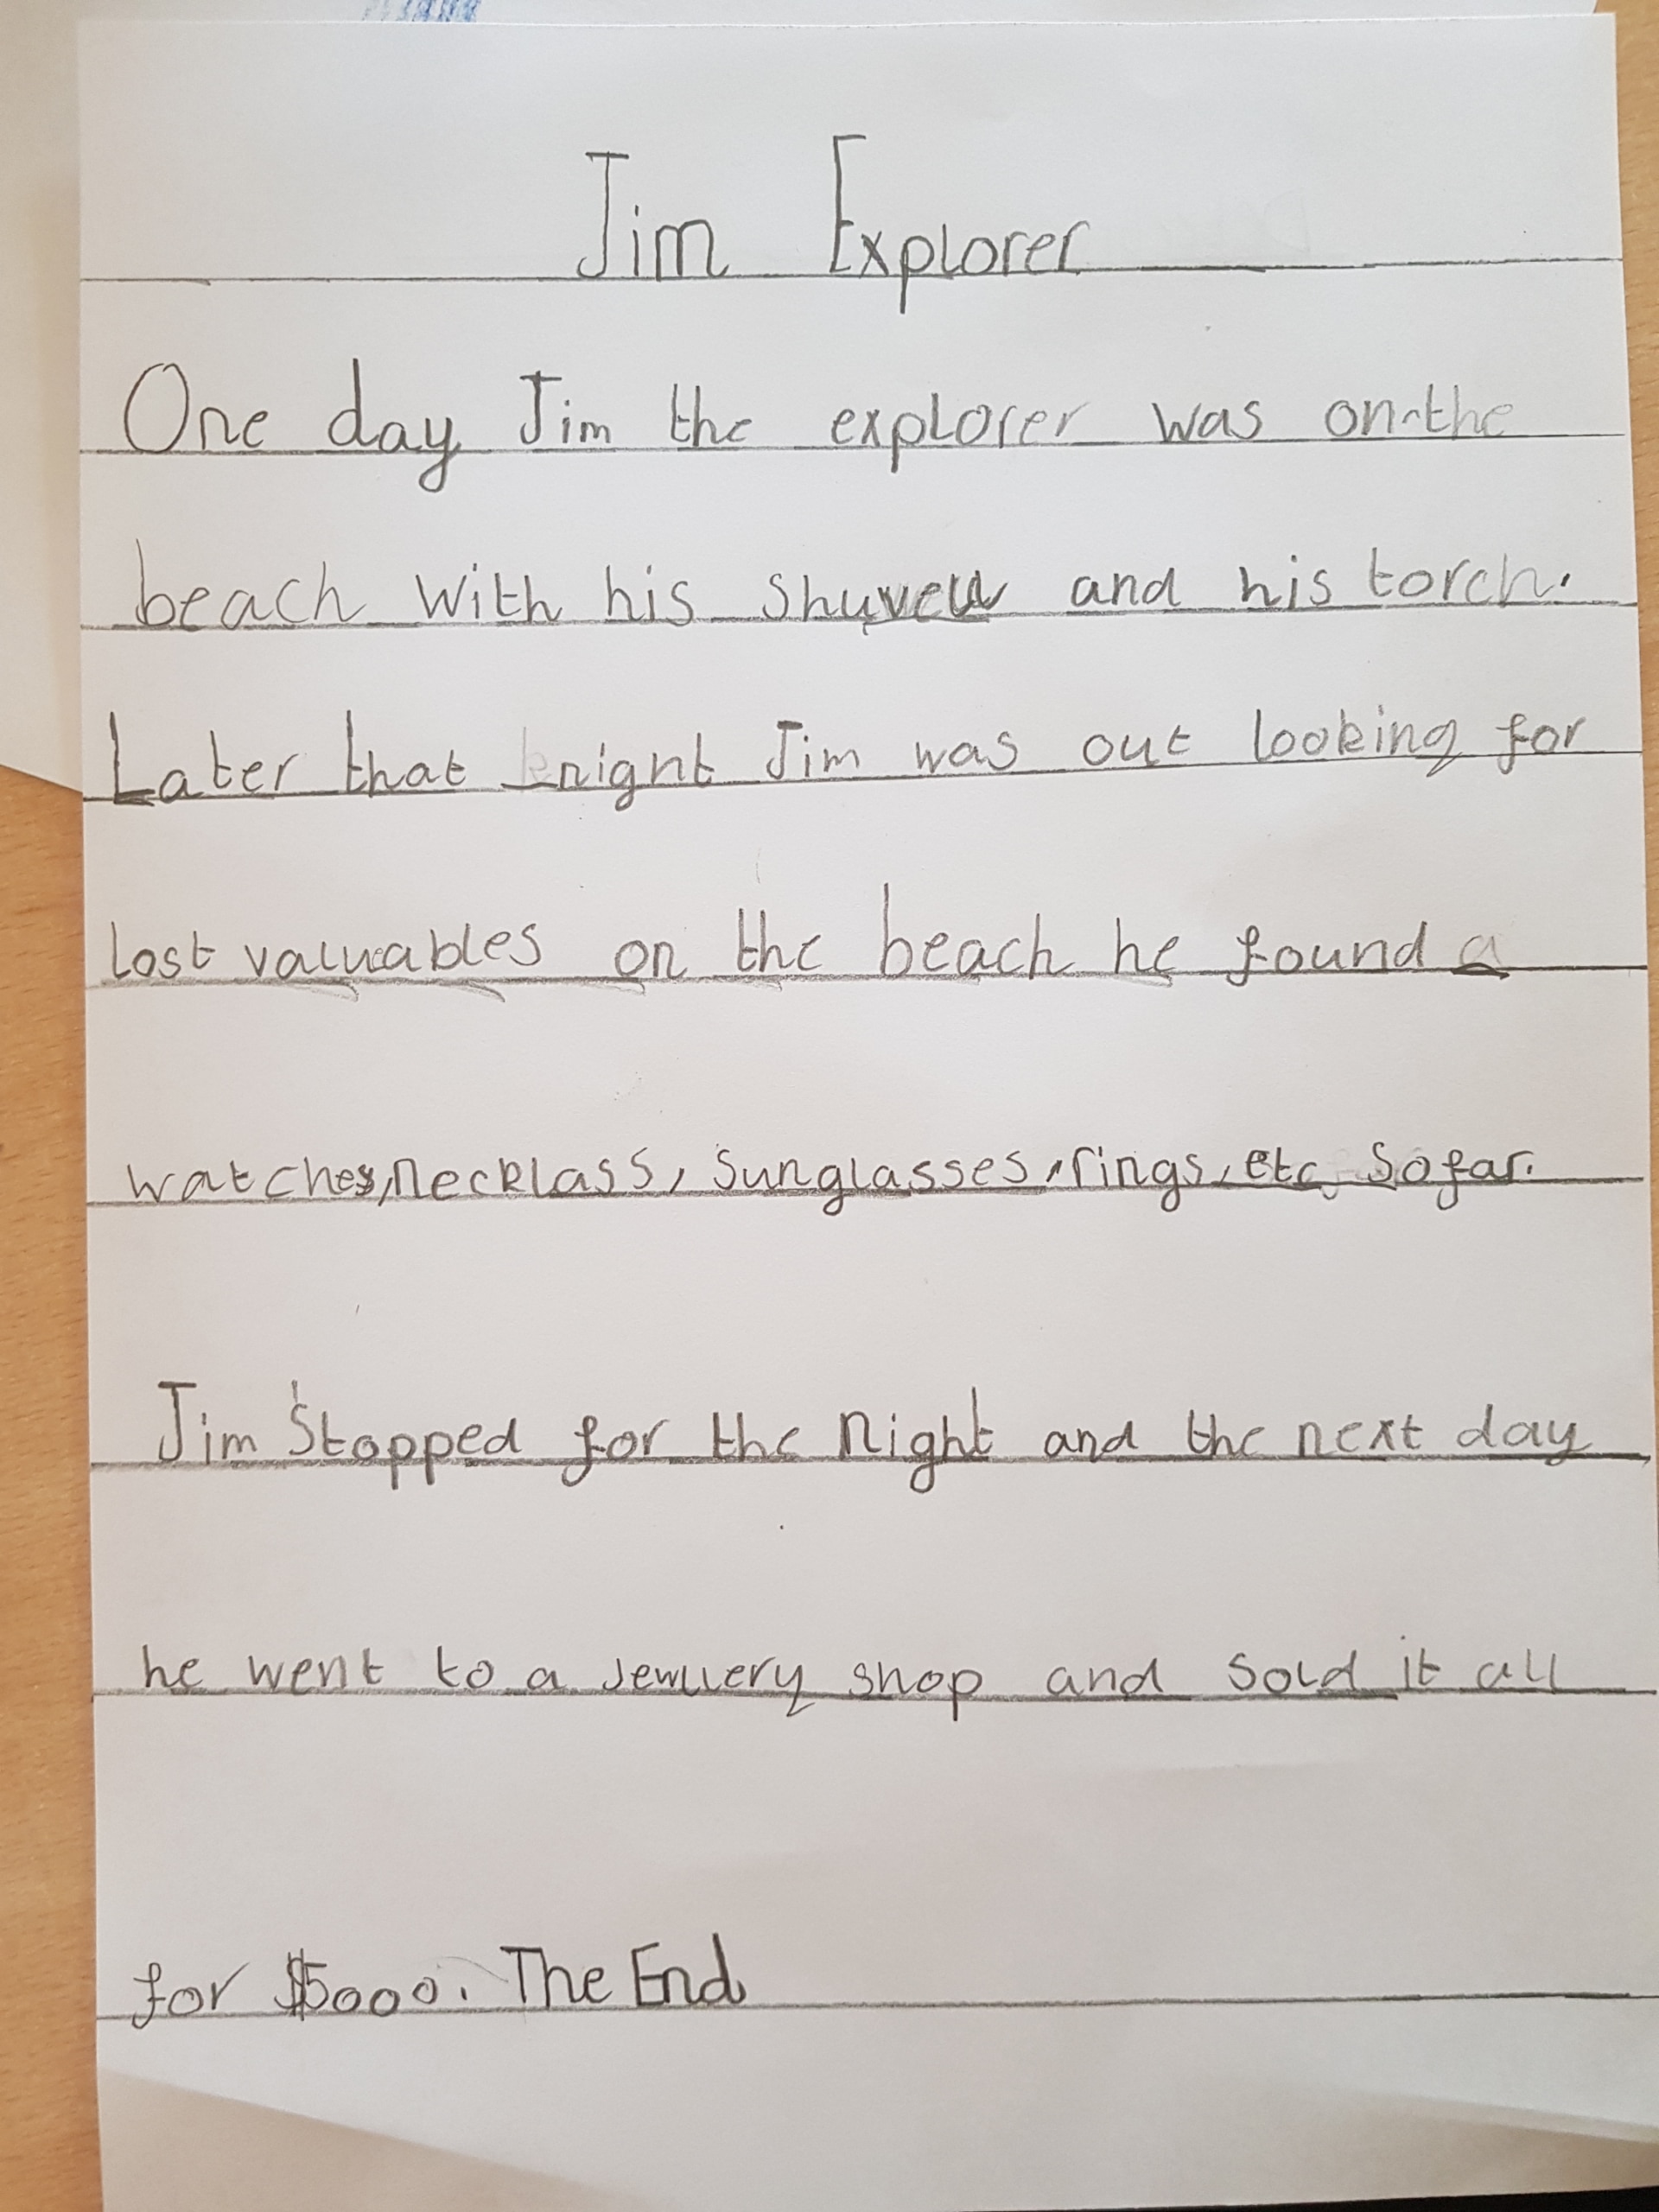 Jim Explorer
One day Jim the explorer was on the
beach with his shuvell and his torch.
Later that night Jim was out looking for
lost valuables on the beach he found a
watches, necklass, sunglasses, rings, etc, so far.
Jim stopped for the night and the next day
he went to a jewllery shop and sold it all
for $5000. The End